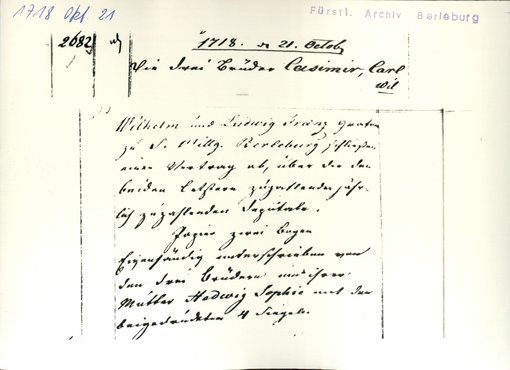 1718 Okt. 21
Fürstl. Archiv Berleburg
2682
1718. de 21. Octob
Die drei Brüder Casimir, Carl
Wil
Wilhelm und Ludwig Franz Grafen
zu S. Wittg. Berleburg schließen
einen Vertrag ab, über die den
beiden Letztern zuzahlenden jähr-
lich zuzahlenden Deputate.
Papier zwei Bogen
Eigenhändig unterschrieben von
den drei Brüdern und ihrer
Mutter Hedwig Sophie mit den
beigedrückten 4 Siegeln.